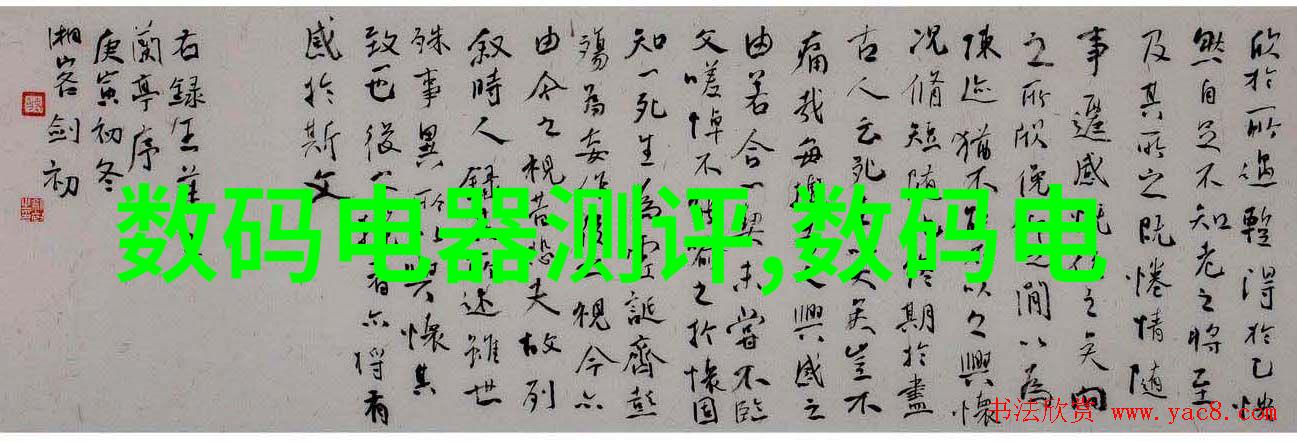 欣於所遇暫得於己快
然自足不知老之將至
及其所之既惓情隨
事遷感慨係之矣向
之所欣俛仰之間以為
陳迹猶不能不以之興懷
況脩短隨化終期於盡
古人云死生亦大矣豈不
痛哉每攬昔人興感之
由若合一契未嘗不臨
文嗟悼不能喻之於懷固
知一死生為虛誕齊彭
殤為妄作後之視今亦
由今之視昔悲夫故列
敘時人錄其所述雖世
殊事異所以興懷其
致一也後之攬者亦將有
感於斯文
右錄王羲
蘭亭序
庚寅初冬
湘客劍初
数码电器测评,数码电
书法欣赏 www.yac8.com